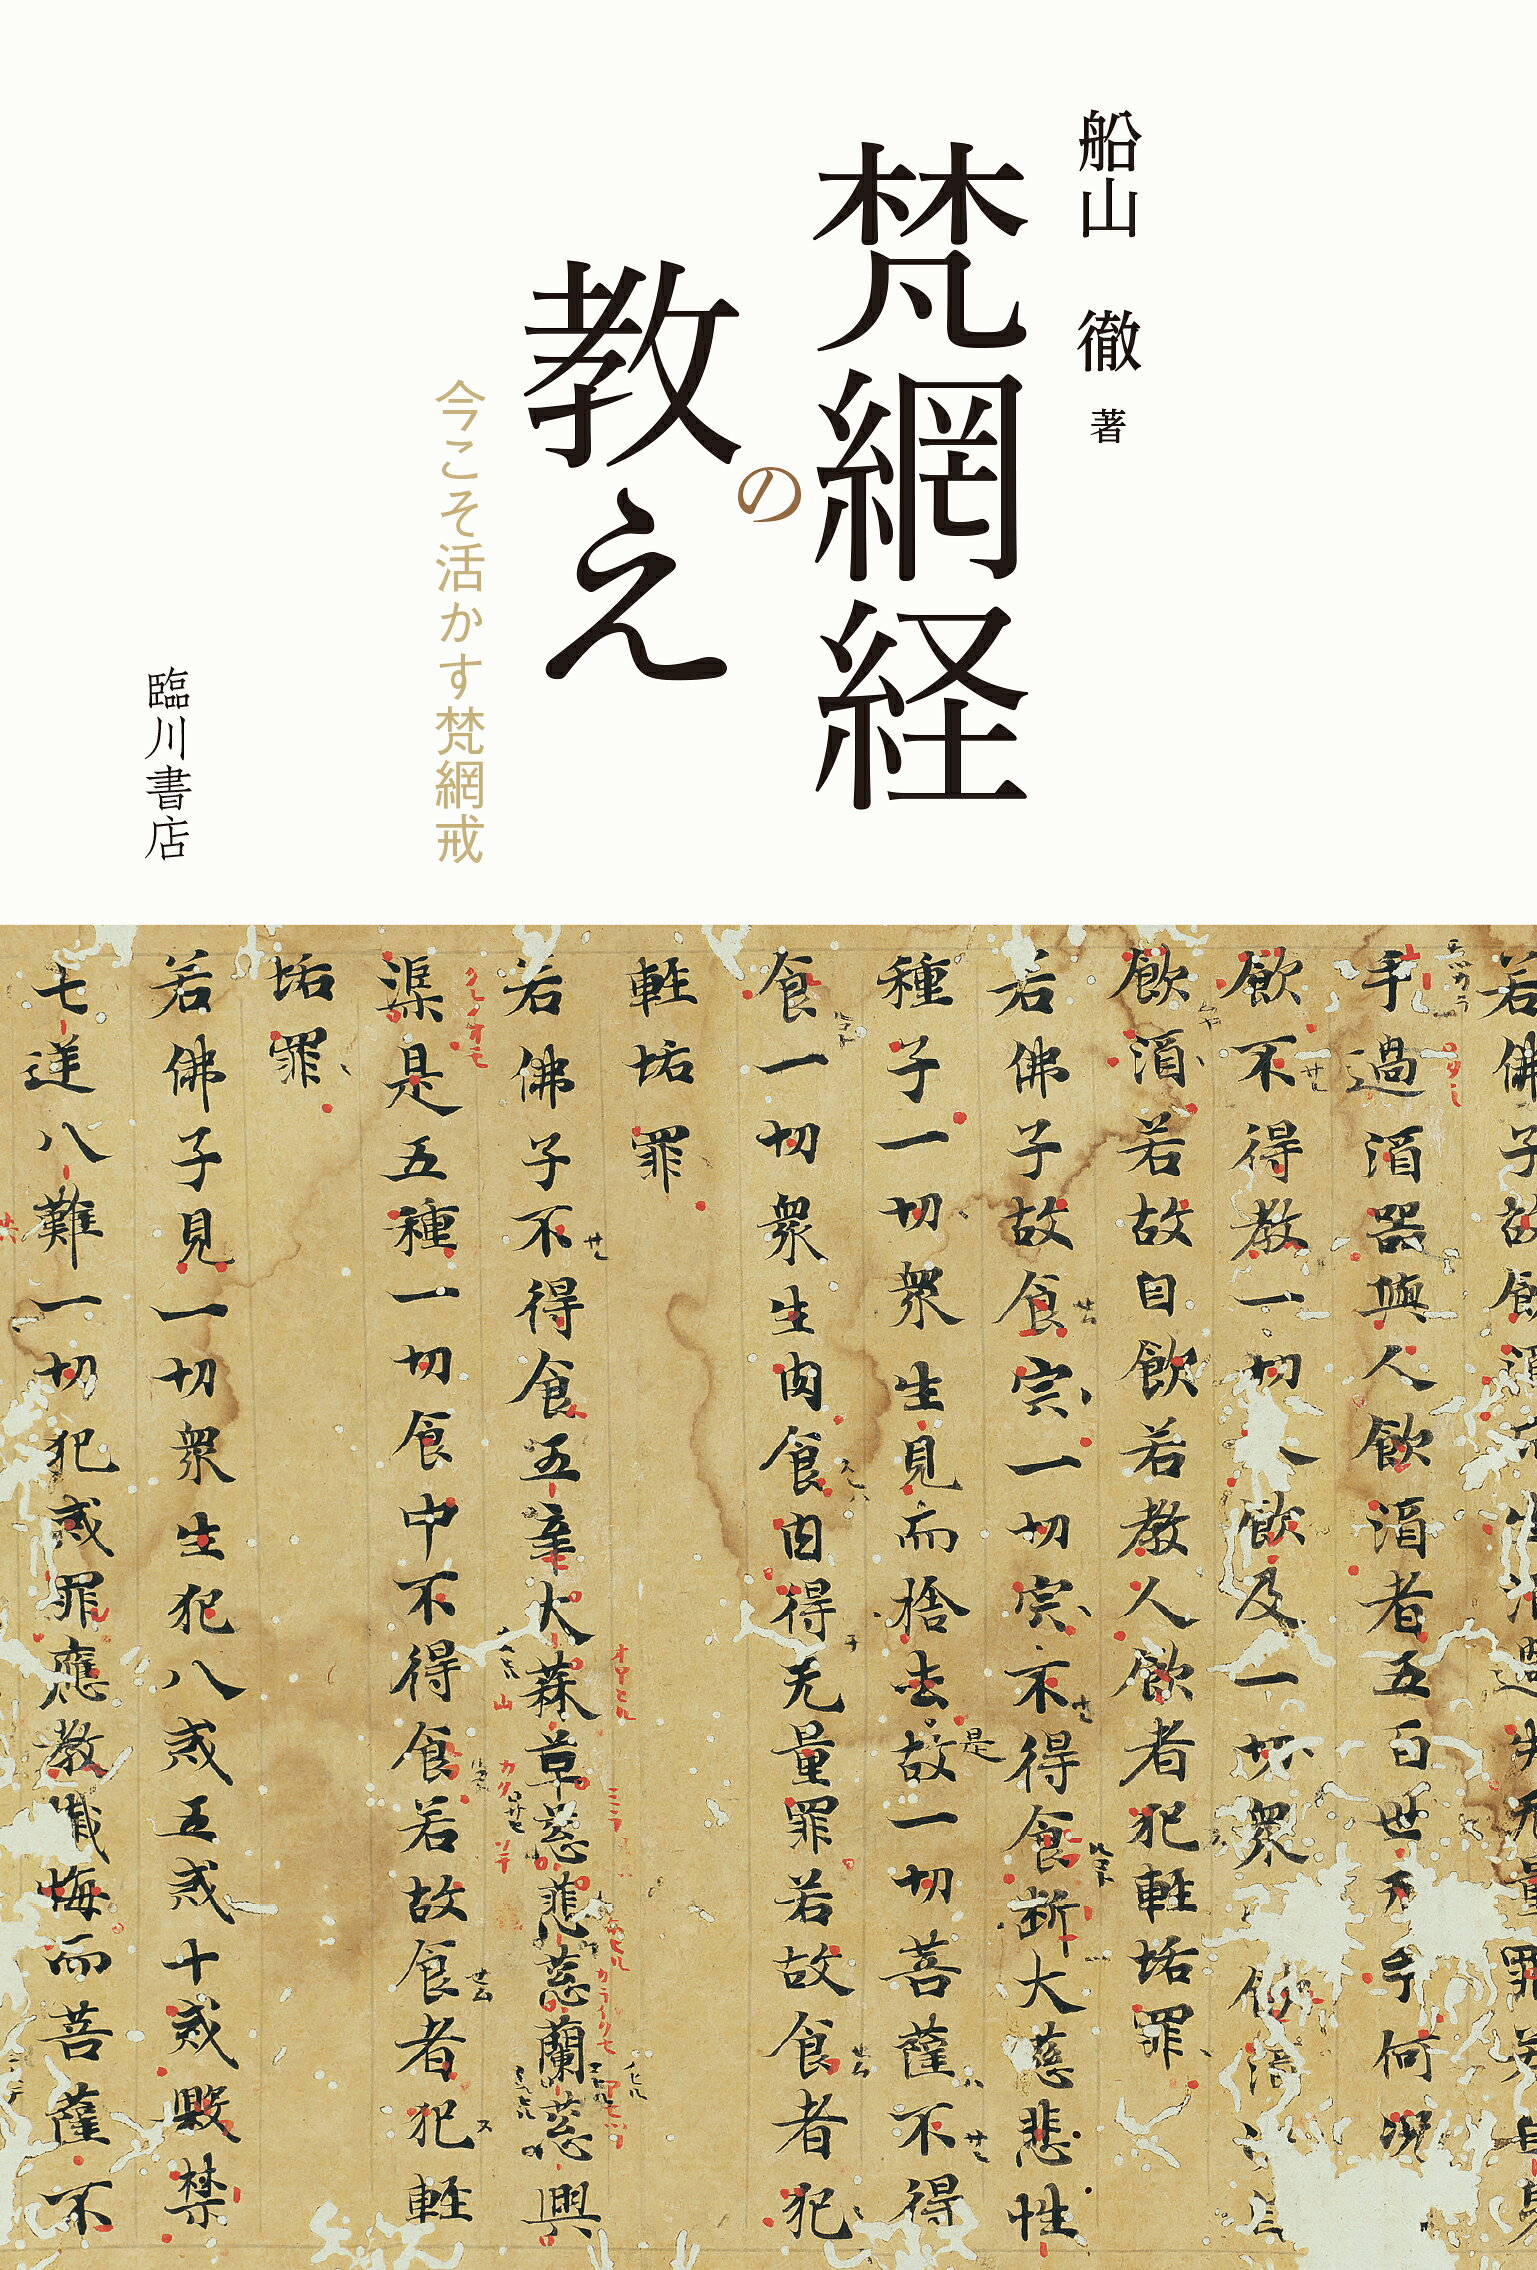 船山 徹 著
梵網経
の
教え
今こそ活かす梵網戒
臨川書店
若佛子故飲酒
手過酒器與人飲酒者五百世无手何況
飲不得教一切人飲及一切衆
飲酒若故自飲若教人飲者犯輕垢罪
若佛子故食宍一切宍不得食断大慈悲性
種子一切衆生見而捨去是故一切菩薩不得
食一切衆生肉食肉得无量罪若故食者犯
輕垢罪
若佛子不得食五辛大蒜草葱慈葱蘭葱興
渠是五種一切食中不得食若故食者犯輕
垢罪
若佛子見一切衆生犯八戒五戒十戒毀禁
七逆八難一切犯戒罪應教懺悔而菩薩不